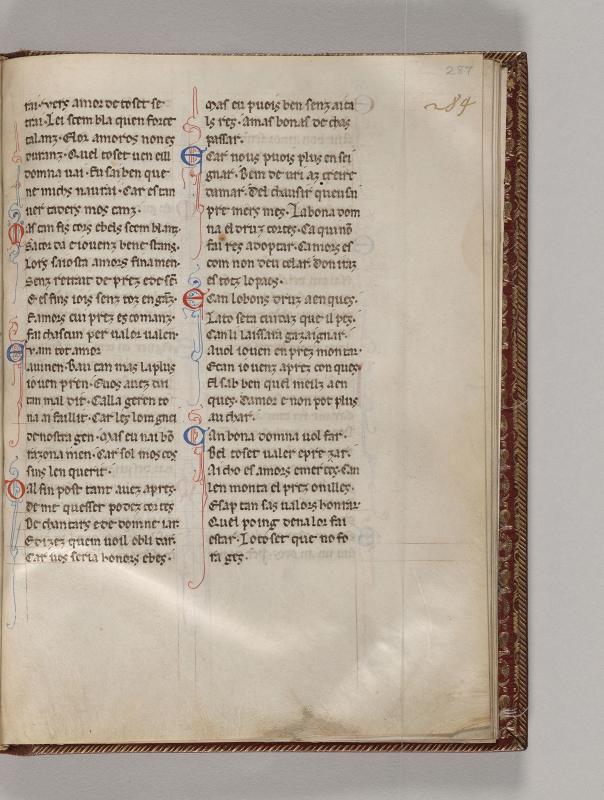 287
284
rai. vers amor de toset se
trai. Lei sembla quen force
talanz. E lor amoros non es
duranz. Quel toset uen eill
domna uai. En sai ben que
ne michs naurai. Car es tan
uer cavers mos canz.
Mas tan fis cors e bels sembланz
e iouenz ben estans.
Lors amors finamen.
Senz retrait de prez e de
E es fins iois senz toz enganz.
E amors cui prez es comanz.
fai chascun per ualor ualen.
E uam tot amor
auinen. tan mas la plus
iouen pren. E uos auez cui
tan mal dir. Calla geren to
na ai faillit. Car les
de nostra gen. Mas eu nai bō
razon a men. Car sol mos cors
fins len querit.
Dal fin post tant auez apres.
de mi quesset podez cortes
De chantars e de domneiar.
E dizez quem voil oblidar.
Car uos seria honors e bes.
Mas eu puois ben senz aita
ls res. Amas bonas de chas
passar.
E car nous puois plus ensei
gnar. Bem deuriaz creire
damar. Del chausir queus
pre mers mes. La bona dom
na el druz cortes. Ca qui nō
fai res adoptar. Camors es
com non deu celar. Don
es totz lo paes.
E can lo bons druz a en ques.
La to seta cuidaz que il pes.
Can li laissara gazaignar.
Auol iouen en prez montar.
E can iouenz apres con ques.
El sab ben quel meilz a en
ques. Damor e non pot plus
au char.
Can bona domna uol far.
Bel toset ualer e prezar.
Aicho es amors e mertes. Can
len monta el prez on illes.
E sap tan sas ualors honrar
Quel poing de ualor fai
estar. Lo toset que no fo
ra ges.